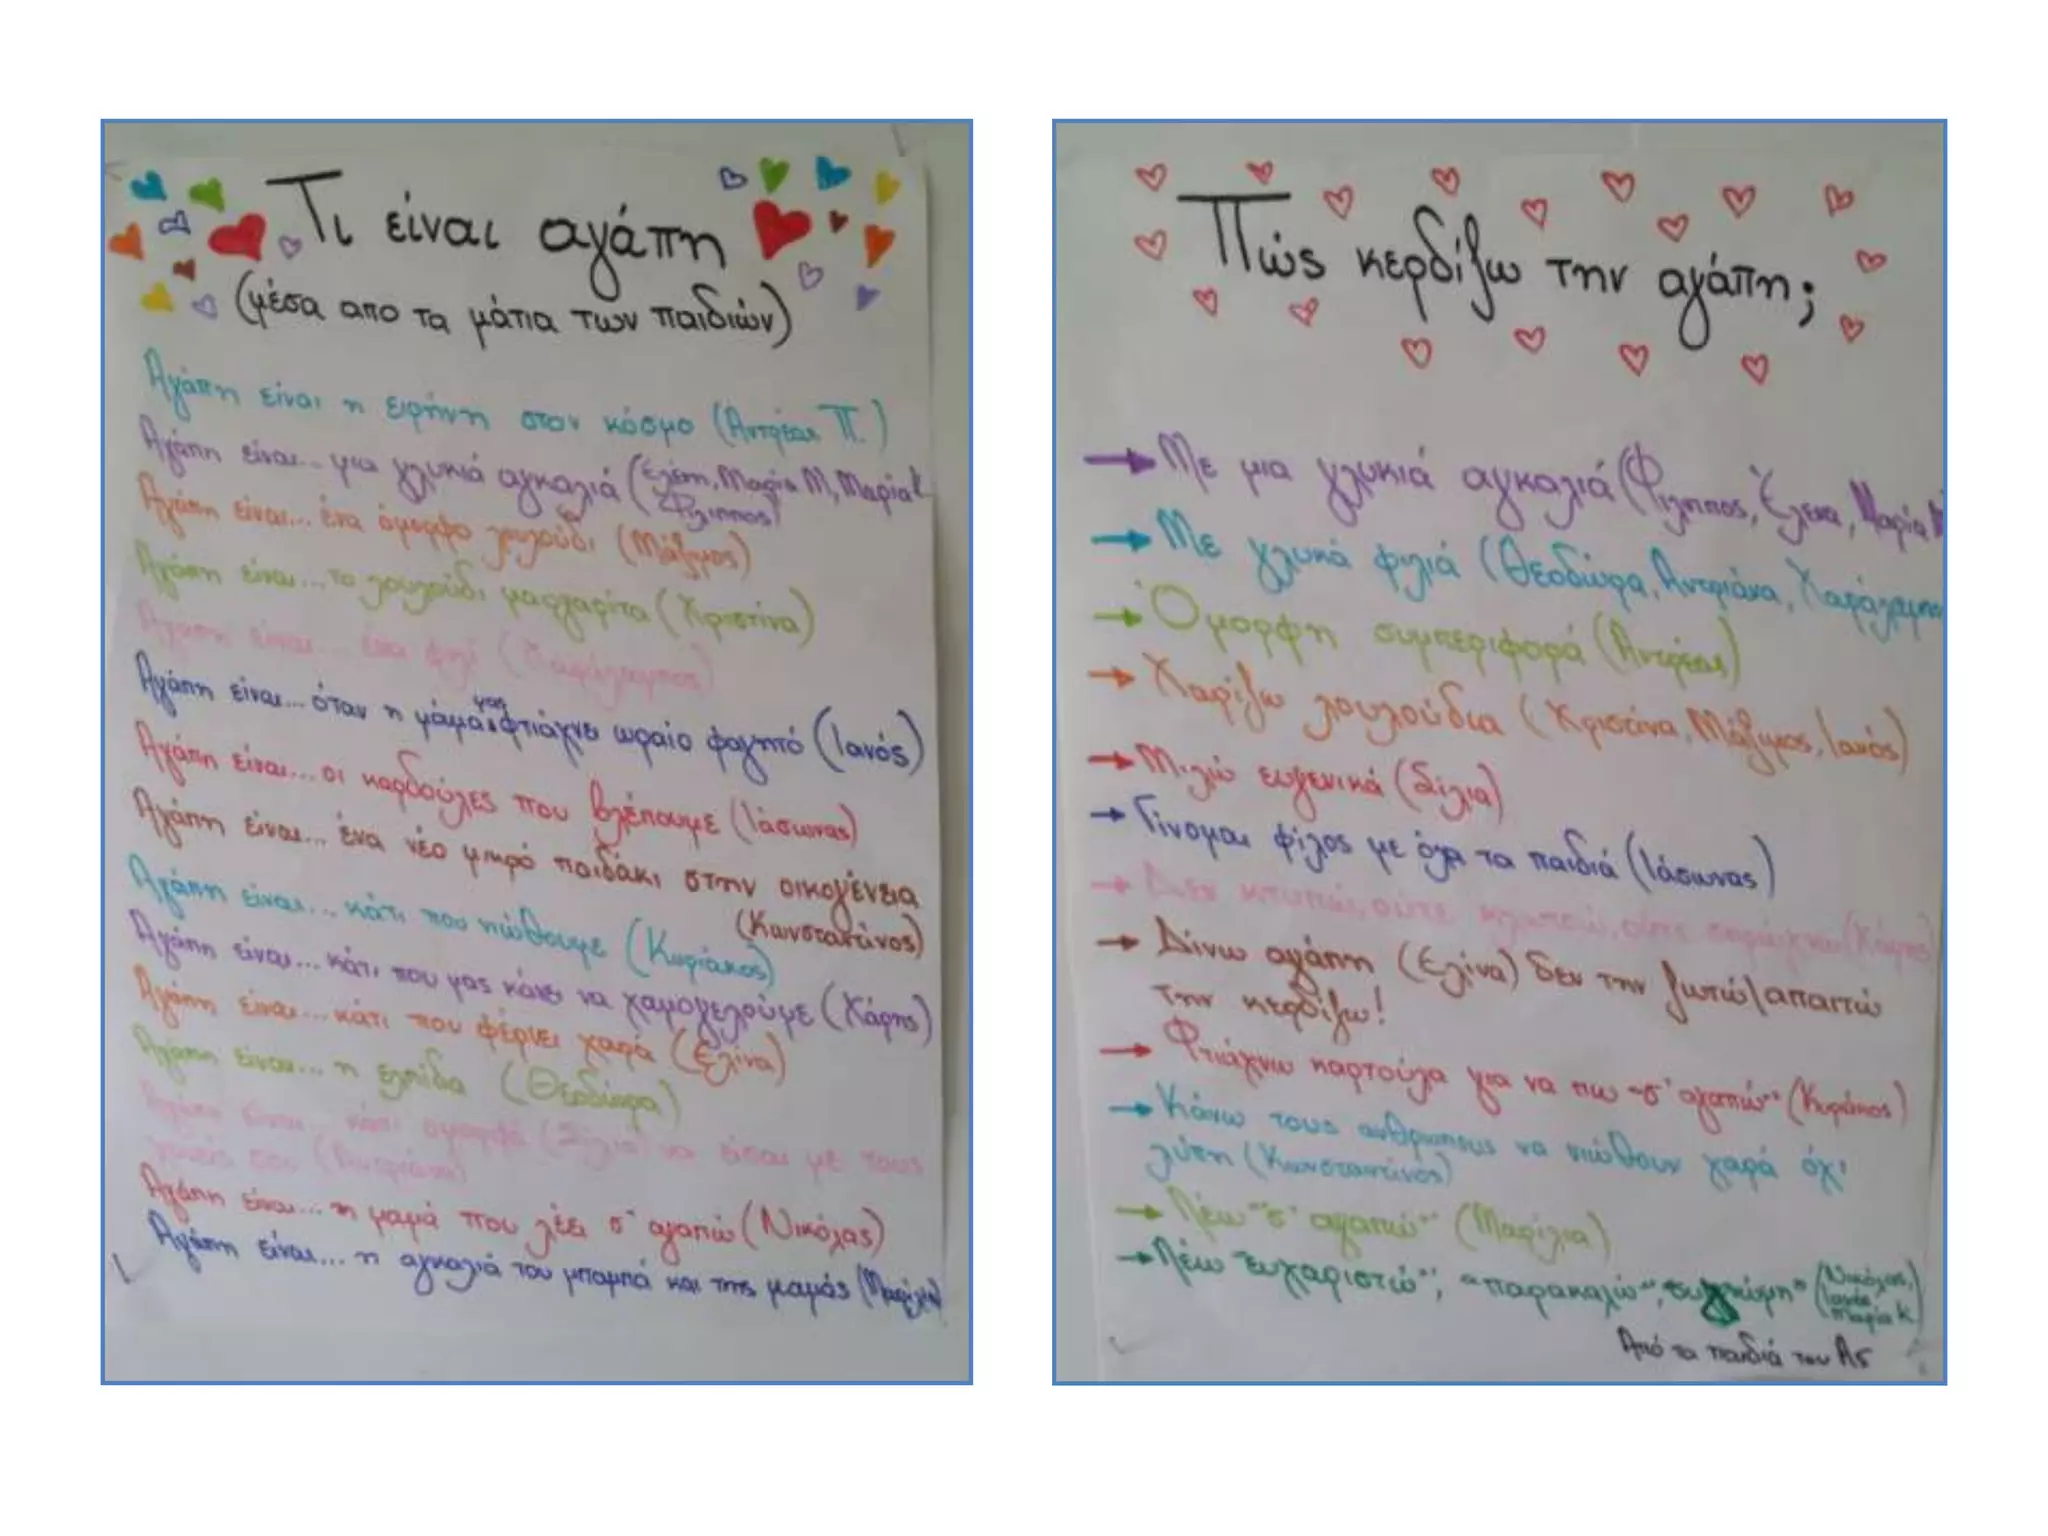 Τι είναι αγάπη
(μέσα απο τα μάτια των παιδιών)
Αγάπη είναι η ειρήνη στον κόσμο (Αντρέας Π.)
Αγάπη είναι... μια γλυκιά αγκαλιά (Ελένη, Μαρία Μ, Μαρία Κ
Φίλιππος)
Αγάπη είναι... ένα όμορφο λουλούδι (Μάξιμος)
Αγάπη είναι... το λουλούδι μαργαρίτα (Χριστίνα)
Αγάπη είναι... ένα φιλί (Χαράλαμπος)
Αγάπη είναι... όταν η μάμα μας φτιάχνει ωραίο φαγητό (Ιανός)
Αγάπη είναι... οι καρδούλες που βλέπουμε (Ιάσωνας)
Αγάπη είναι... ένα νέο μικρό παιδάκι στην οικογένεια
(Κωνσταντίνος)
Αγάπη είναι... κάτι που νιώθουμε (Κυριάκος)
Αγάπη είναι... κάτι που μας κάνει να χαμογελούμε (Χάρης)
Αγάπη είναι... κάτι που φέρνει χαρά (Ελίνα)
Αγάπη είναι... η ελπίδα (Θεοδώρα)
Αγάπη είναι... κάτι όμορφο (Σίλια) να είσαι με τους
γονείς σου (Αντριάνα)
Αγάπη είναι... η μαμά που λέει σ' αγαπώ (Νικόλας)
Αγάπη είναι... η αγκαλιά του μπαμπά και της μαμάς (Μαρίλια)
Πώς κερδίζω την αγάπη;
Με μια γλυκιά αγκαλιά (Φίλιππος, Έλενα, Μαρία Μ
Με γλυκά φιλιά (Θεοδώρα, Αντριάνα, Χαράλαμπο
Όμορφη συμπεριφορά (Αντρέας)
Χαρίζω λουλούδια (Χριστίνα, Μάξιμος, Ιανός)
Μιλώ ευγενικά (Σίλια)
Γίνομαι φίλος με όλα τα παιδιά (Ιάσωνας)
Δεν κτυπώ, ούτε κλωτσώ, ούτε (Χάρης)
Δίνω αγάπη (Ελίνα) δεν την ζητώ/απαιτώ
την κερδίζω!
Φτιάχνω καρτούλα για να πω "σ' αγαπώ" (Κυριάκος)
Κάνω τους ανθρώπους να νιώθουν χαρά όχι
λύπη (Κωνσταντίνος)
Λέω "σ' αγαπώ" (Μαρίλια)
Λέω "ευχαριστώ", "παρακαλώ", "συγνώμη" (Νικόλας,
Ιανός,
Μαρία Κ)
Από τα παιδιά του Α5